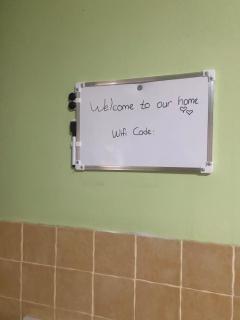 Welcome to our home
Wifi Code: